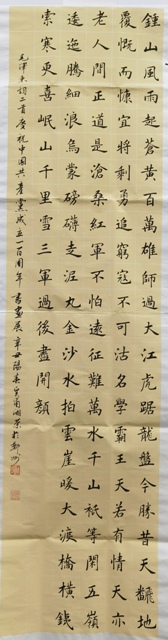 鍾山風雨起蒼黄百萬雄師過大江虎踞龍盤今勝昔天翻地
覆慨而慷宜將剩勇追窮寇不可沽名學霸王天若有情天亦
老人間正道是滄桑紅軍不怕遠征難萬水千山祇等閑五嶺
逶迤騰細浪烏蒙磅礴走泥丸金沙水拍雲崖暖大渡橋橫銕
索寒更喜岷山千里雪三軍過後盡開顏
毛澤東詞二首慶祝中国共產黨成立一百周年書畫展辛丑